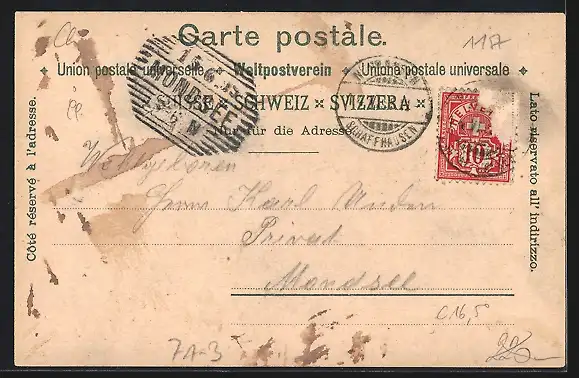 Carte postale.
1187
Union postale universelle Weltpostverein Unione postale universale
SUISSE × SCHWEIZ × SVIZZERA
Nur für die Adresse
Côté réservé à l'adresse.
Lato riservato all' indirizzo.
MONDSEE
SCHAFFHAUSEN
10
Wohlgeboren
Herrn Karl
Privat
Mondsee
C16,50
71-3